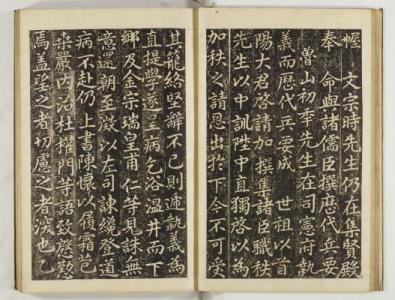 幄 文宗時先生仍在集賢殿
奉 命與諸儒臣撰歷代兵要
山初李先生在司憲府執
義而歷代兵要成 世祖以首
陽大君啓請加撰集諸臣職秩
先生以中訓陞中直獨啓以為
加秩之請恩出於下今不可受
其籠絡堅辭不已則遞執義為
直提學遂呈病乞浴溫井而下
鄉及金宗瑞皇甫仁等見誅無
意還朝至徵以左司諫登道
病不赴仍上書陳懷以履霜
嚴內治杜權門等語致慇懃
焉盖望之者切慮之者深也乙